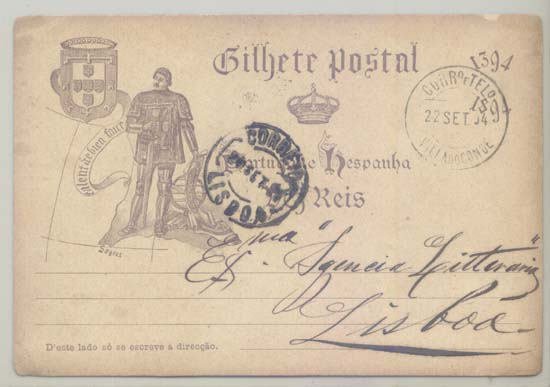 Bilhete Postal
1394
1894
talent de bien faire
Portugal e Hespanha
Reis
Sagres
CORRO E TELO
22 SET. 94
VILLA DO CONDE
CORREIO
LISBOA
Exma
"Agencia Litteraria"
Lisboa
D'este lado só se escreve a direcção.